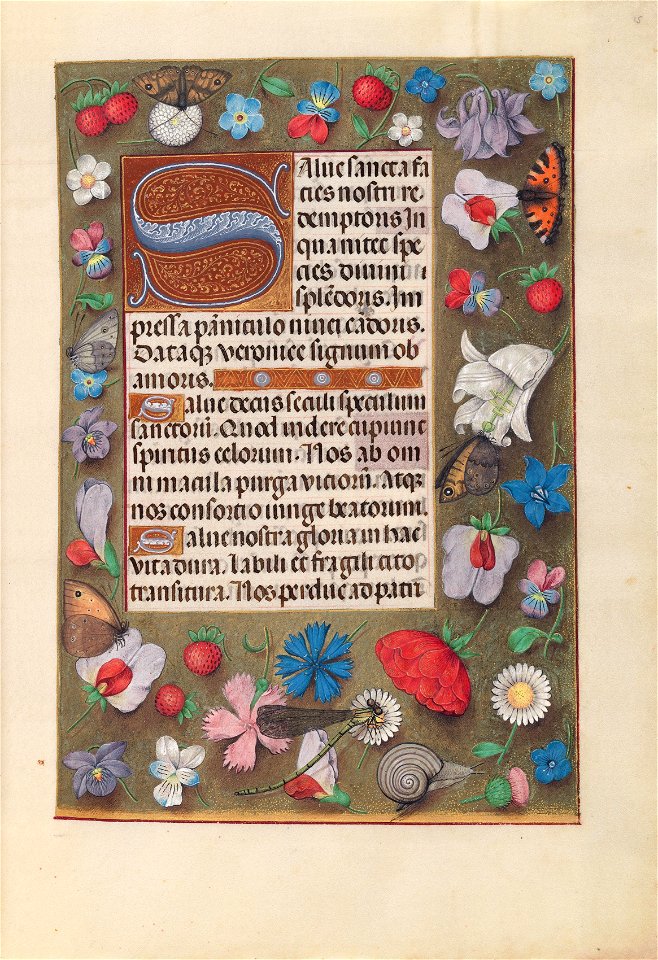 Salue sancta fa
cies nostri re
demptoris In
qua nitet spe
cies diuini
splēdoris. Im
pressa pāniculo niuei cādoris.
Dataqꝫ veronice signum ob
amoris.
Salue decus seculi speculum
sanctorū. Quod uidere cupiunt
spiritus celorum. Nos ab om
ni macula purga viciorū. Atqꝫ
nos consortio iunge beatorum.
Salue nostra gloria in hac
vita dura. Labili et fragili cito
transitura. Nos perduc ad patri